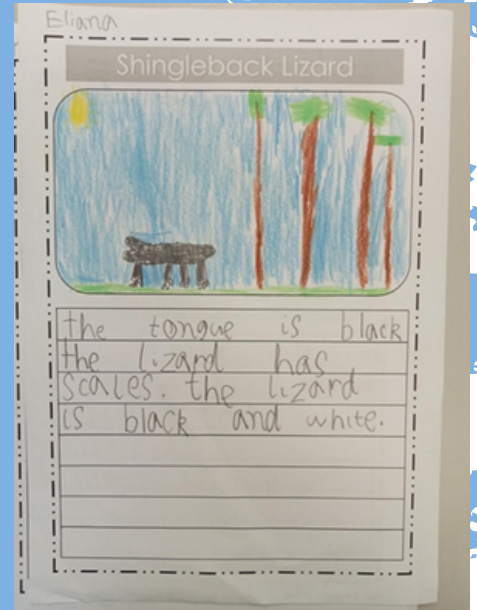 Eliana
Shingleback Lizard
the tongue is black
the lizard has
scales. the lizard
is black and white.